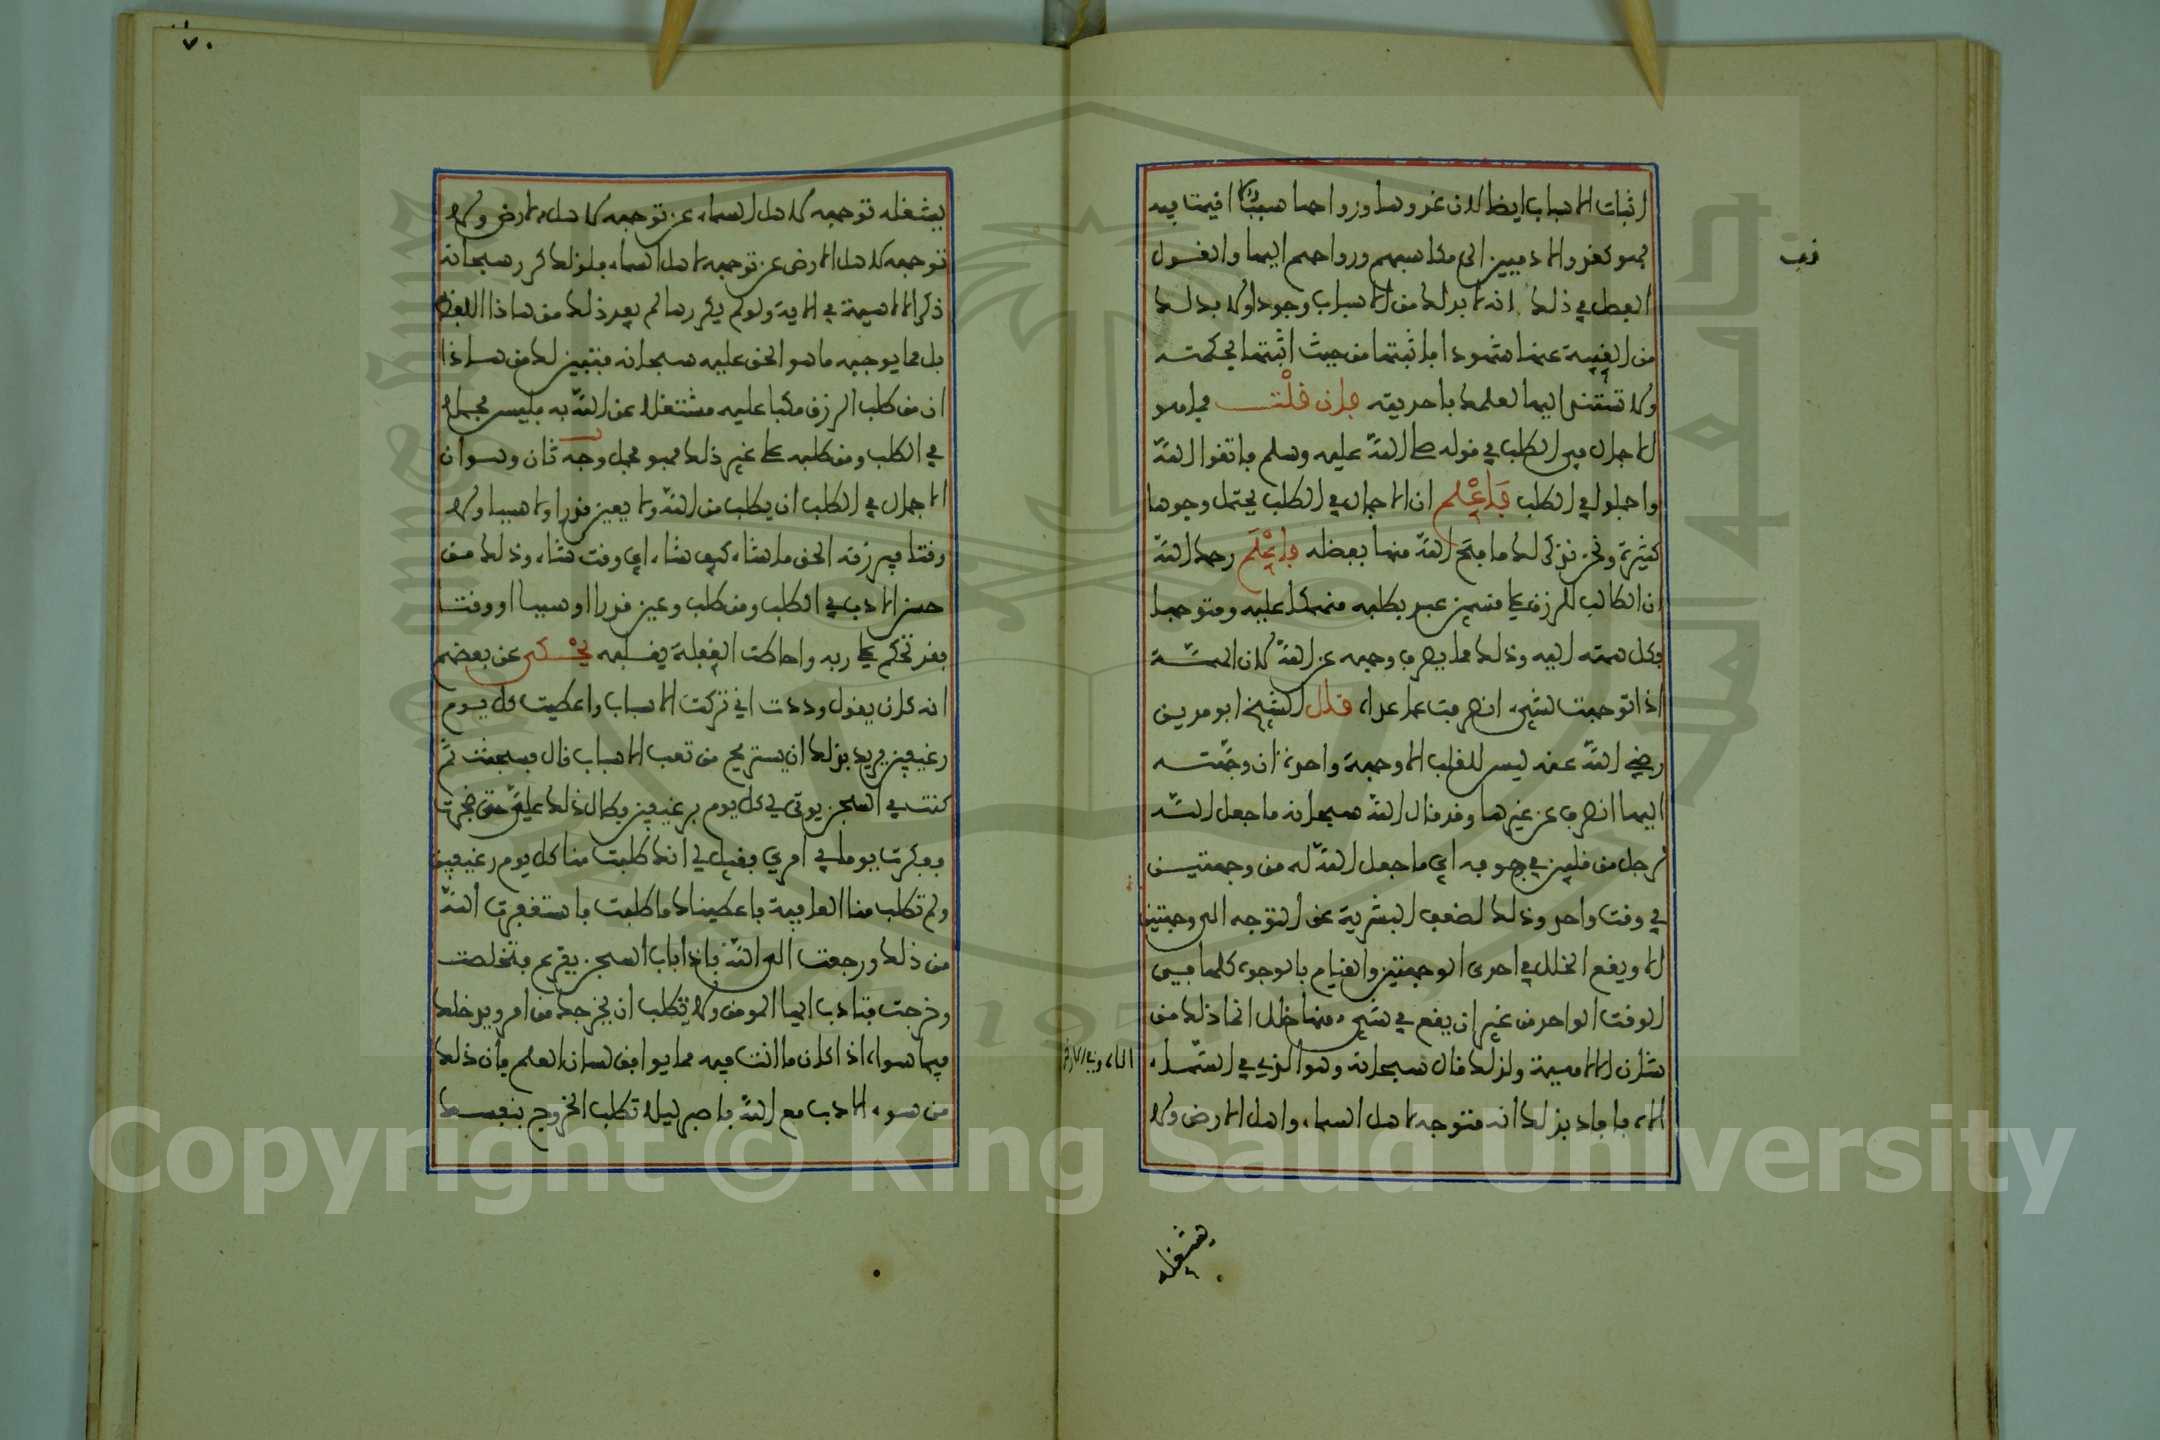 اثبات الاسباب ايضا لان غدوها ورواحها سببا اقيمت به
فهو كغدو الادميين الى مكاسبهم ورواحهم اليها والقول
الفصل في ذلك انه لا بد لك من الاسباب وجودا ولا بد لك
من الغيبة عنها شهودا فاثبتها من حيث اثبتها بحكمته
ولا تستند اليها لعلمك باحديته فان قلت فما هو
الاجمال في الطلب في قوله صلى الله عليه وسلم فاتقوا الله
واجملوا في الطلب فاعلم ان الاجمال في الطلب يحتمل وجوها
كثيرة ونحن نذكر لك ما فتح الله منها بفضله فاعلم رحمك الله
ان الطالب للرزق على قسمين عبد يطلبه منكبا عليه ومتوجها
بكل همته اليه وذلك مما يصرف وجهه عن الله لان الهمة
اذا توجهت لشيء انصرفت عما عداه قال الشيخ ابو مدين
رضي الله عنه ليس للقلب الا وجهة واحدة ان وجهته
اليها انصرف عن غيرها وقد قال الله سبحانه ما جعل الله
لرجل من قلبين في جوفه اي ما جعل الله له من وجهتين
في وقت واحد وذلك لضعف البشرية عن التوجه الى وجهتين
الا ويقع الخلل في احدى الوجهتين والقيام بالوجوه كلها في
الوقت الواحد من غير ان يقع في شيء منها خلل انما ذلك من
شان الالاهية ولذلك قال سبحانه وهو الذي في السماء
الاه وفي الارض
الاه فافاد بذلك انه متوجه لاهل السماء واهل الارض ولا
يشغله
يشغله توجهه لاهل السماء عن توجهه لاهل الارض ولا
توجهه لاهل الارض عن توجهه لاهل السماء فلذلك كرر سبحانه
ذكر الالاهية في الاية ولو لم يكررها لم يفد ذلك من هاذا اللفظ
بل مما يوجبه ما هو الحق عليه سبحانه فتبين لك من هاذا
ان من طلب الرزق مكبا عليه مشتغلا عن الله به فليس مجملا
في الطلب ومن طلبه على غير ذلك فهو مجمل وجه ثان وهو ان
الاجمال في الطلب ان يطلب من الله ولا يعين قدرا ولا سببا ولا
وقتا فيرزقه الحق ما شاء كيف شاء اي وقت شاء وذلك من
حسن الادب في الطلب ومن طلب وعين قدرا او سببا او وقتا
فقد تحكم على ربه واحاطت الغفلة بقلبه يحكى عن بعضهم
انه كان يقول وددت اني تركت الاسباب واعطيت كل يوم
رغيفين يريد بذلك ان يستريح من تعب الاسباب قال فسجنت ثم
كنت في السجن يوتى لي كل يوم برغيفين فطال ذلك علي حتى ضجرت
ففكرت يوما في امري فقيل لي انك طلبت منا كل يوم رغيفين
ولم تطلب منا العافية فاعطيناك ما طلبت فاستغفرت الله
من ذلك ورجعت الى الله فاذا باب السجن يقرع فتخلصت
وخرجت فتادب ايها المومن ولا تطلب ان يخرجك من امر ويدخلك
فيما سواه اذا كان ما انت فيه مما يوافق لسان العلم فان ذلك
من سوء الادب مع الله فاصبر ليلا تطلب الخروج بنفسك
٧٠
Copyright © King Saud University